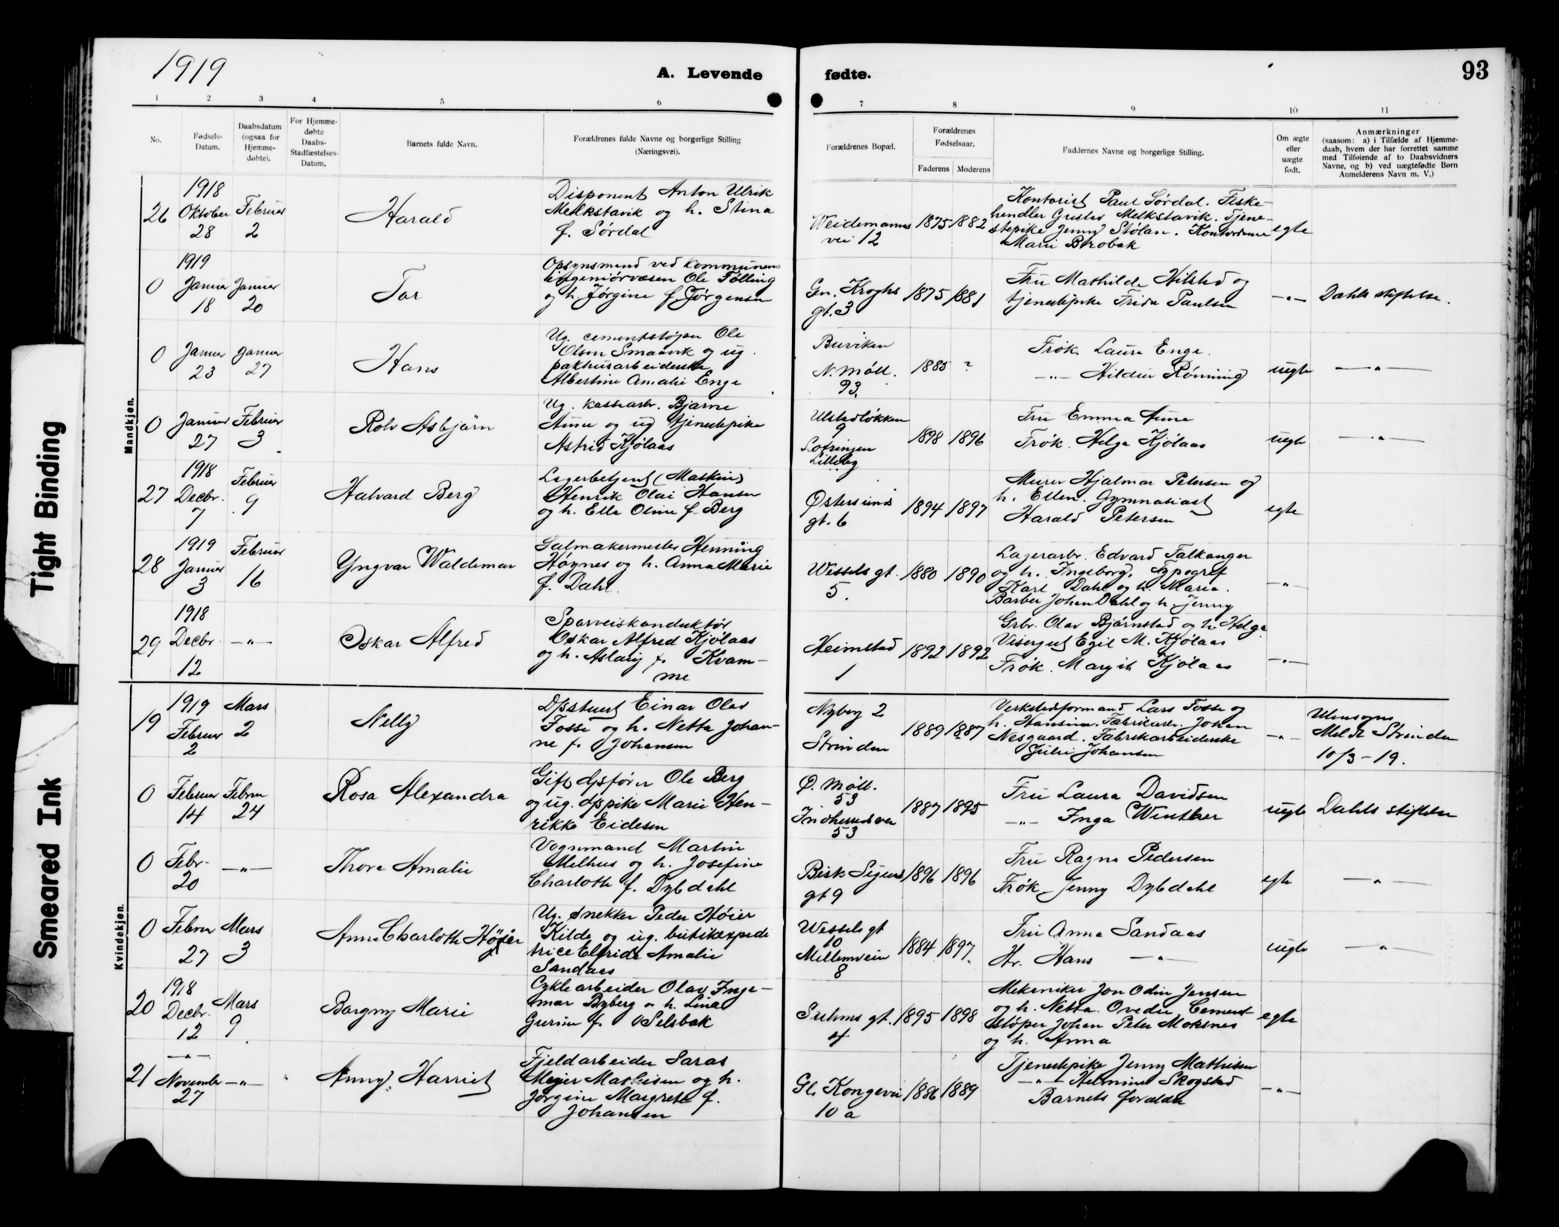 1919
A. Levende fødte.
93
1 2 3 4 5 6 7 8 9 10 11
No.
Fødsels-
Datum.
Daabsdatum
(ogsaa for
Hjemme-
døbte).
For Hjemme-
døbte
Daabs-
Stadfæstelses-
Datum.
Barnets fulde Navn.
Forældrenes fulde Navne og borgerlige Stilling
(Næringsvei).
Forældrenes Bopæl.
Forældrenes
Fødselsaar.
Faderens Moderens
Faddernes Navne og borgerlige Stilling.
Om ægte
eller
uægte
født.
Anmærkninger
(saasom: a) i Tilfælde af Hjemme-
daab, hvem der har forrettet samme
med Tilføiende af to Daabsvidners
Navne, og b) ved uægtefødte Børn
Anmelderens Navn m. V.)
Mandkjøn.
26
1918
Oktober
28
Februar
2
Harald
Disponent Anton Ulrik
Melkstavik og h. Stina
f. Sørdal
Weidemanns
vei 12
1875 1882
Kontorist Paul Sørdal. Fiske-
handler Gustav Melkstavik. Tjene-
stepike Jenny Stølan. Kontordame
Marie Brobak
egte
0
1919
Januar
18
Januar
20
Tor
Opsynsmand ved kommunens
ingeniørvæsen Ole Følling
og h. Jørgine f. Jørgensen
Gn. Kroghs
gt. 3
1875 1881
Fru Mathilde Hilstad og
tjenestepike Frida Paulsen
-"-
Dahls stiftelse.
0
Januar
23
Januar
27
Hans
Ug. cementstøper Ole
Olsen Smaavik og ug.
pakhusarbeiderske
Albertine Amalie Enge
Buviken
N. Møll.
93.
1885 ?
Frøk. Laura Enge.
-"- Hildur Rønning
uegte
-"-
0
Januar
27
Februar
3
Rolv Asbjørn
Ug. kassearb. Bjarne
Aune og ug tjenestepike
Astrid Kjølaas
Ulstadløkken
9
Lofringen
Lilleby
1898 1896
Fru Emma Aune
Frøk. Helga Kjølaas
uegte
-"-
27
1918
Decbr.
7
Februar
9
Halvard Berg
Lagerbetjent (Maskin)
Henrik Olai Hansen
og h. Ella Oline f. Berg
Østersunds
gt. 6
1894 1897
Murer Hjalmar Petersen og
h. Ellen. Gymnasiast
Harald Petersen
egte
28
1919
Januar
3
Februar
16
Yngvar Waldemar
Salmakermester Henning
Høynes og h. Anna Marie
f. Dahl.
Wessels gt.
5.
1880 1890
Lagerarb. Edvard Falkanger
og h. Ingeborg. Typograf
Karl Dahl og h. Maria.
Barber Johan Dahl og h. Jenny
-"-
29
1918
Decbr.
12
-"-
Oskar Alfred
Sporveiskonduktør
Oskar Alfred Kjølaas
og h. Aslaug f. Kvam-
me
Heimstad
1
1892 1892
Grbr. Olav Bjørnstad og h. Helga
Visergut Egil M. Kjølaas
Frøk. Margit Kjølaas
-"-
Kvindekjøn.
19
1919
Februar
2
Mars
2
Nelly
Einar Olav
Fosse og h. Netta Johan-
ne f. Johansen
Nyborg 2
Strinden
1889 1887
Verkstedformand Lars Fosse og
h. Hansine. Fabrikarb. Johan
Nesgaard. Fabrikarbeiderske
Julie Johansen
-"-
Utensogns
Meldt Strinden
10/3-19.
0
Februar
14
Februar
24
Rosa Alexandra
Gift Ole Berg
og ug. Marie Hen-
rikke Eidesen
Ø. Møll.
53
Indherredsvei
53
1887 1895
Fru Laura Davidsen
-"- Inga Winther
uegte
Dahls stiftelse
0
Febr.
20
-"-
Thora Amalie
Vognmand Martin
Melhus og h. Josefine
Charlotte f. Dybdahl
Bisk Sigurds
gt 9
1896 1896
Fru Ragna Pedersen
Frøk. Jenny Dybdahl
egte
-"-
0
Februar
27
Mars
3
Anne Charlotte Høyer
Ug. snekker Peder Høier
Kilde og ug. butikekspedi
trice Elfrida Amalie
Sandaas
Wessels gt
10
Mellemveien
8
1884 1897.
Fru Anna Sandaas
Hr. Hans -"-
uegte
-"-
20
1918
Decbr.
12
Mars
9
Borgny Marie
Cyklearbeider Olav Inge-
mar Byberg og h. Lina
Gurine f. Selsbak
Suhms gt.
4
1895 1898
Mekaniker Jon Odin Jensen
og h. Netta Ovedie. Cement
støper Johan Peter Moksnes
og h. Anna
egte
21
-"-
November
27
-"-
Anny Harriet
Fjeldarbeider Saras
Meyer Mathisen og h.
Jørgine Margrete f.
Johansen
Gl. Kongevei
10 a
1886 1889
Tjenestepike Jenny Mathisen
-"- Helmine Skogstad
Barnets forældre
-"-
Tight Binding
Smeared Ink